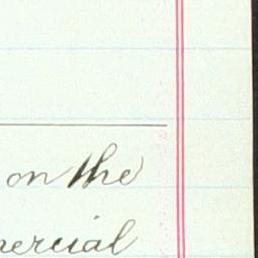 on the
mercial